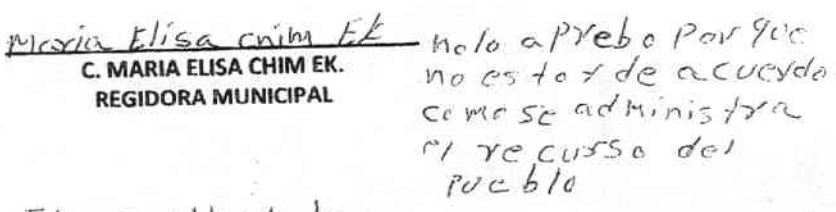 Maria Elisa chim EK
C. MARIA ELISA CHIM EK.
REGIDORA MUNICIPAL
nolo aprebo Por que
no estoy de acuerdo
come se administra
el recusso del
Pueblo